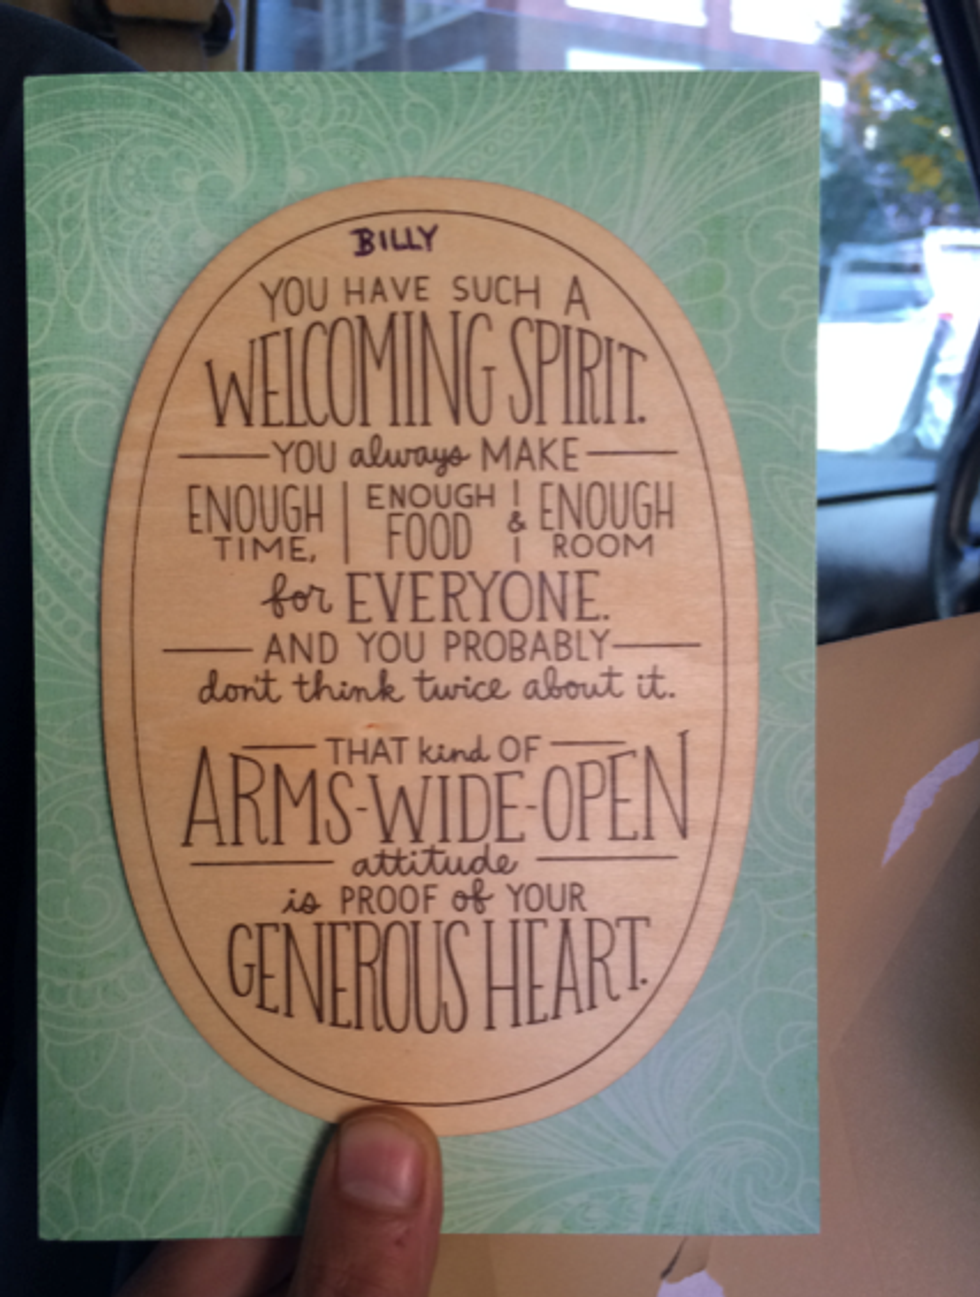 BILLY
YOU HAVE SUCH A
WELCOMING SPIRIT.
YOU always MAKE
ENOUGH TIME, ENOUGH FOOD & ENOUGH ROOM
for EVERYONE.
AND YOU PROBABLY
don't think twice about it.
THAT kind OF
ARMS-WIDE-OPEN
attitude
is PROOF of YOUR
GENEROUS HEART.